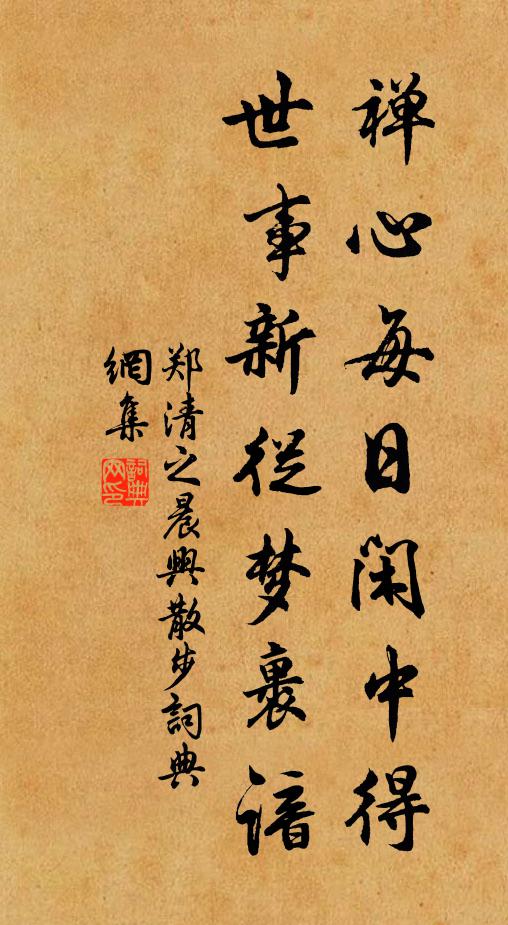 禅心每日闲中得
世事新从梦裏谙
郑清之晨興散步詞典
網集
詞典
网印